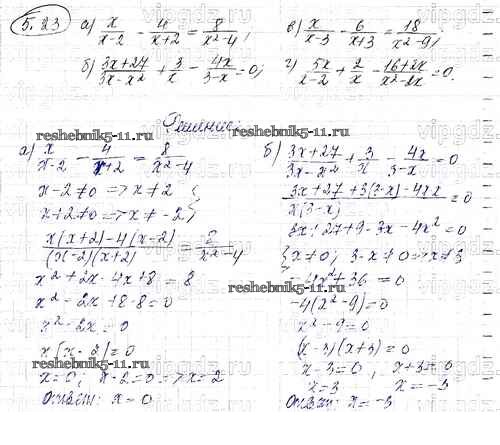 5.23 а) x/(x-2) - 4/(x+2) = 8/(x²-4); в) x/(x-3) - 6/(x+3) = 18/(x²-9);
б) (3x+27)/(3x-x²) + 3/x - 4x/(3-x) = 0; г) 5x/(x-2) + 2/x - (16+2x)/(x²-2x) = 0.
Решение:
reshebnik5-11.ru
reshebnik5-11.ru
а) x/(x-2) - 4/(x+2) = 8/(x²-4)
x-2≠0 => x≠2
x+2≠0 => x≠-2
(x(x+2)-4(x-2))/((x-2)(x+2)) = 8/(x²-4)
x²+2x-4x+8=8
x²-2x+8-8=0
x²-2x=0
x(x-2)=0
x=0; x-2=0=>x=2
Ответ: x=0
б) (3x+27)/(3x-x²) + 3/x - 4x/(3-x) = 0
(3x+27+3(3-x)-4x·x)/(x(3-x)) = 0
3x+27+9-3x-4x²=0
{x≠0; 3-x≠0=>x≠3
reshebnik5-11.ru
-4x²+36=0
-4(x²-9)=0
x²-9=0
(x-3)(x+3)=0
x-3=0, x+3=0
x=3 x=-3
Ответ: x=-3
reshebnik5-11.ru
reshebnik5-11.ru
vipgdz.ru